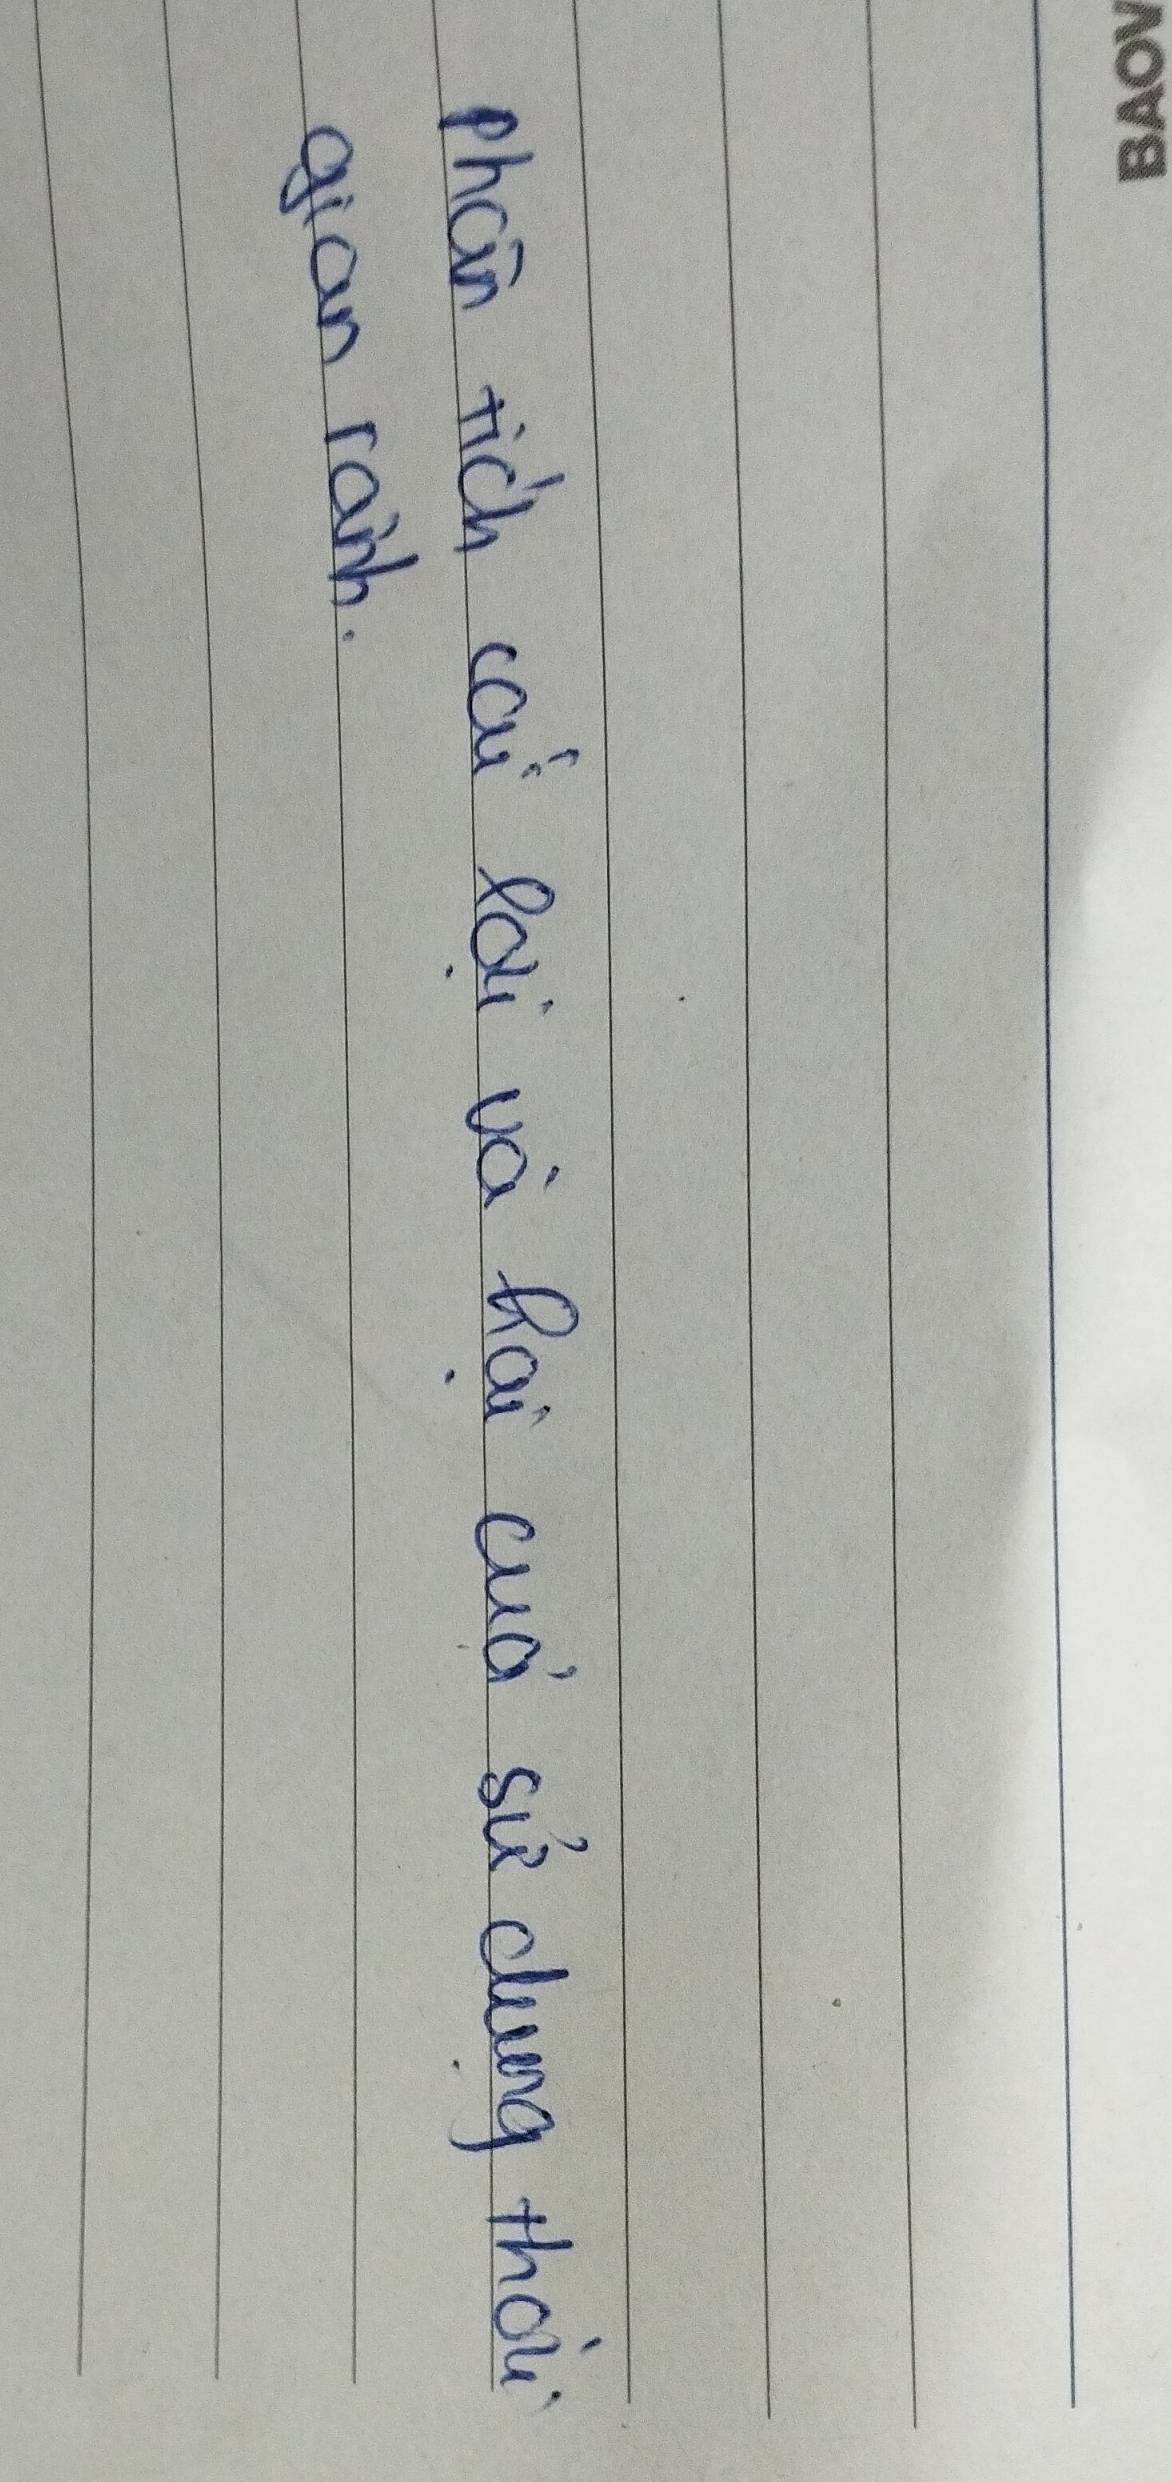 BAOV
Phân tích cái lợi và hại của sử dụng thời
gian rảnh.